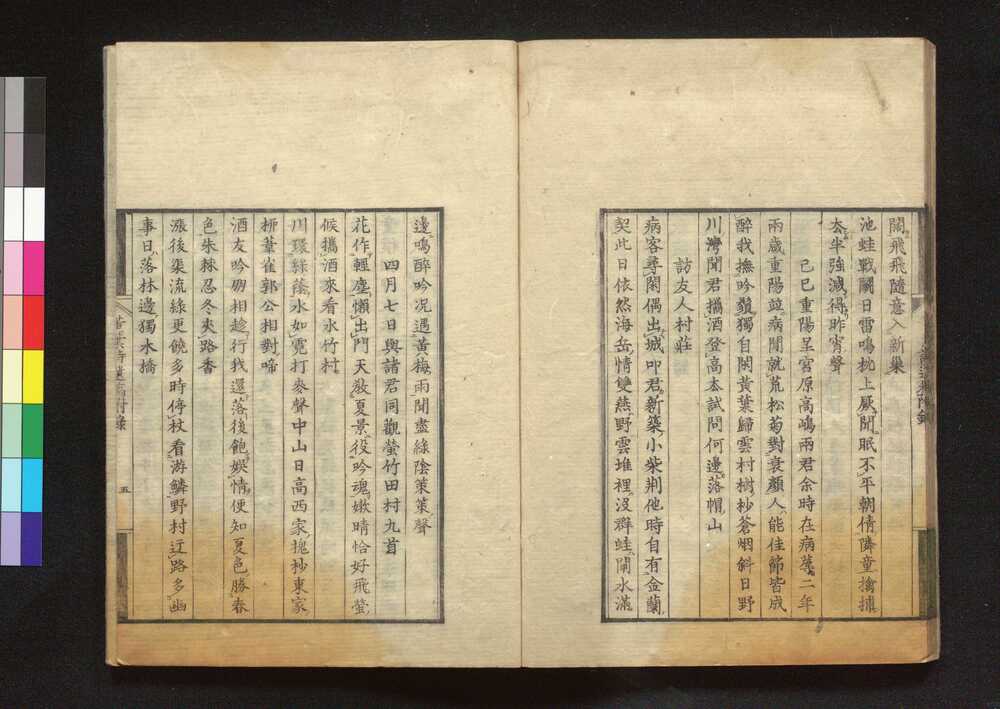 闊飛飛隨意入新巢
池蛙戰鬭日雷鳴枕上厭聞眠不平朝倩隣童擒捕
太半強減得昨宵聲
己巳重陽呈宮原高嶋兩君余時在病蓐二年
兩歲重陽竝病間就荒松菊對衰顏人能佳節皆成
醉我撫吟鬚獨自閑黃葉歸雲村樹杪蒼烟斜日野
川灣聞君攜酒登高去試問何邊落帽山
訪友人村莊
病客尋閑偶出城叩君新築小柴荆他時自有金蘭
契此日依然海岳情雙燕野雲堆裡沒群蛙閙水滿
邊鳴醉吟况遇黃梅雨聞盡綠陰策策聲
四月七日與諸君同觀螢竹田村九首
花作輕塵懶出門天敎夏景役吟魂嫩晴恰好飛螢
候攜酒來看水竹村
川環綠蔭水如霓打麥聲中山日高西家槐杪東家
柳葦雀郭公相對啼
酒友吟朋相趁行我還落後飽娛情便知夏色勝春
色朱棘忍冬夾路香
漲後渠流綠更饒多時停杖看游鱗野村辽路多幽
事日落林邊獨木橋
五